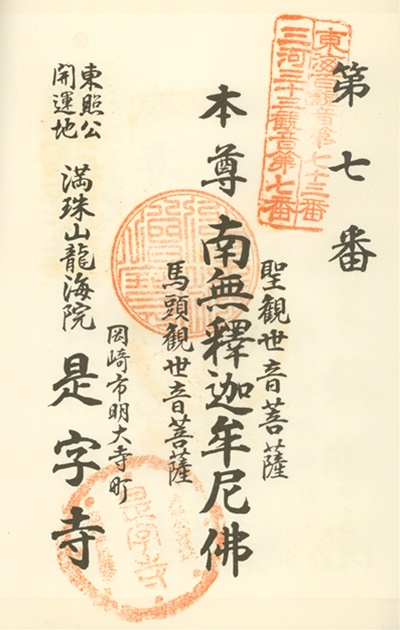 東海百観音第七十三番
三河三十三観音第七番
第七番
聖観世音菩薩
本尊 南無釋迦牟尼佛
馬頭観世音菩薩
岡崎市明大寺町
満珠山龍海院 是字寺
東照公
開運地
是字寺